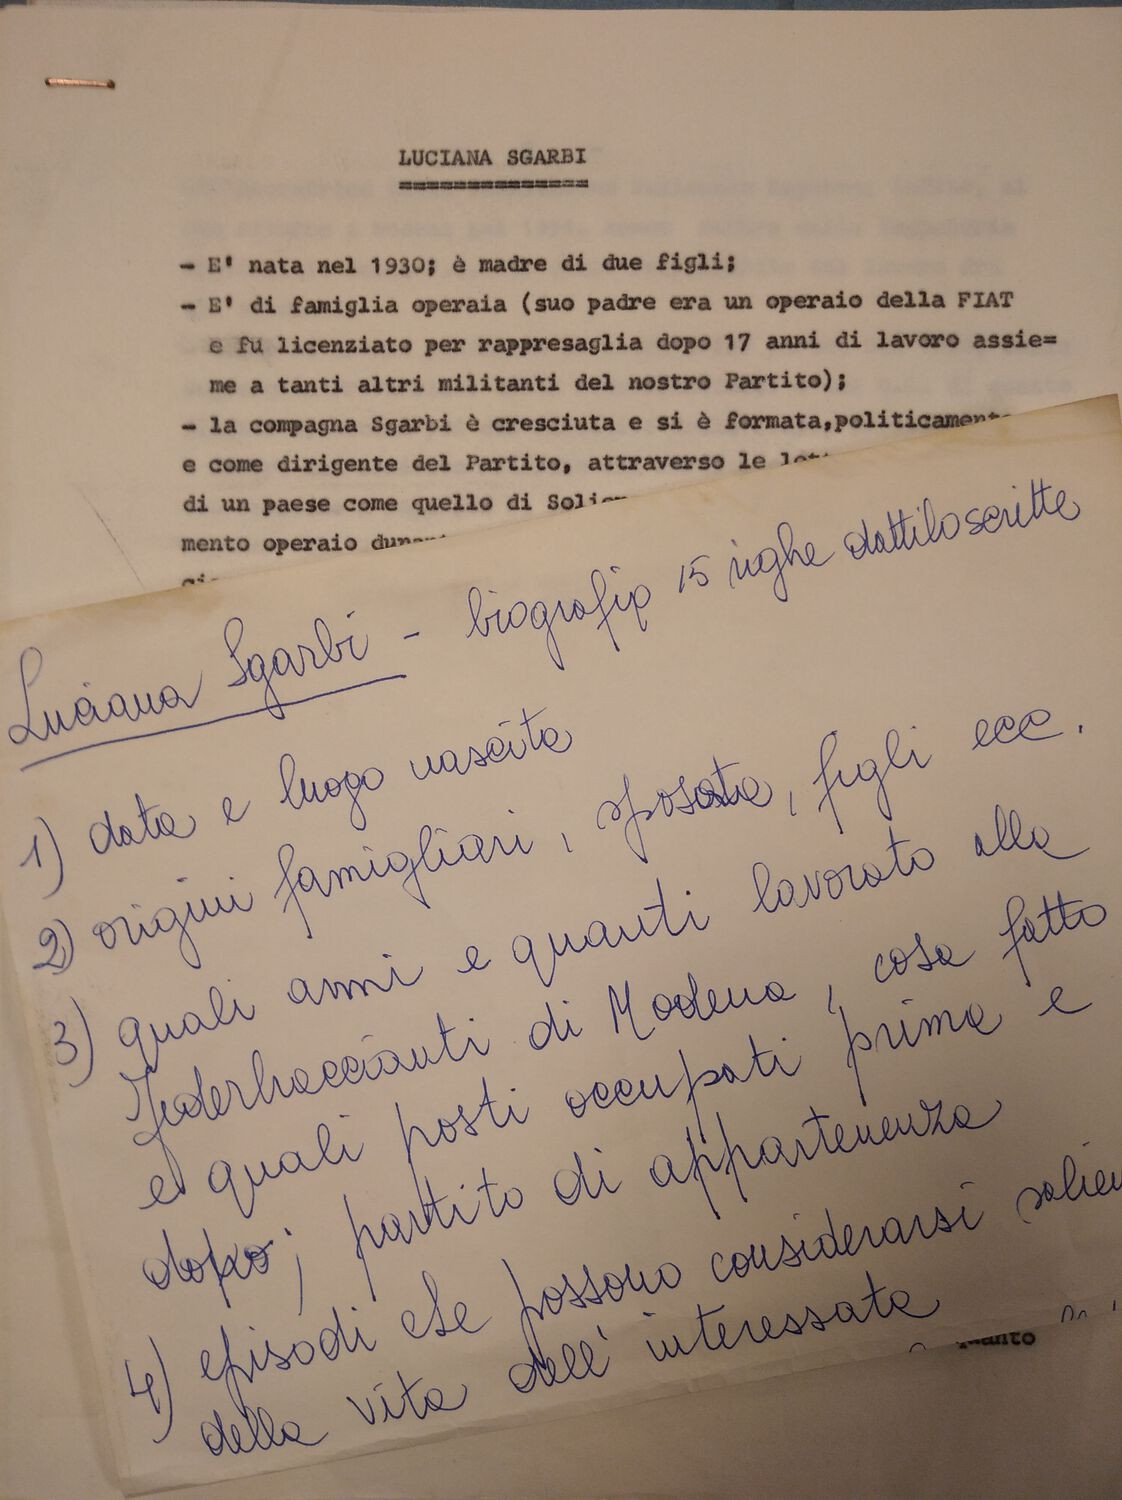 LUCIANA SGARBI
==============
- E' nata nel 1930; è madre di due figli;
- E' di famiglia operaia (suo padre era un operaio della FIAT
e fu licenziato per rappresaglia dopo 17 anni di lavoro assie=
me a tanti altri militanti del nostro Partito);
- la compagna Sgarbi è cresciuta e si è formata,politicamente
e come dirigente del Partito, attraverso le
di un paese come quello di
mento operaio
Luciana Sgarbi - biografia 15 righe dattiloscritte
1) data e luogo nascita
2) origini famigliari, sposata, figli ecc.
3) quali anni e quanti lavorato alla
Federbraccianti di Modena, cosa fatto
e quali posti occupati prima e
dopo; partito di appartenenza
4) episodi che possono considerarsi
della vita dell'interessata